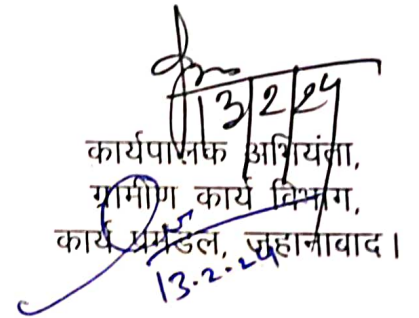 13/2/24
कार्यपालक अभियंता,
ग्रामीण कार्य विभाग,
कार्य प्रमंडल, जहानाबाद।
13.2.24